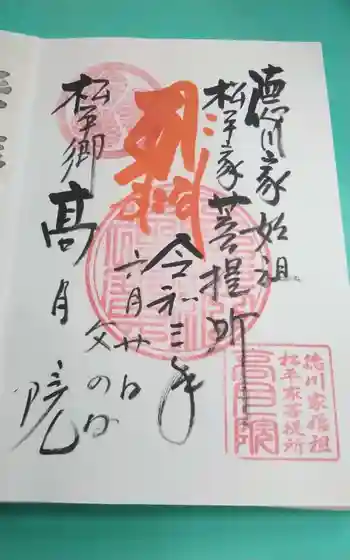 德川家始祖
松平家菩提所
令和三年
六月廿日
父の日
松平郷
高月院
徳川家始祖
松平家菩提所
高月院